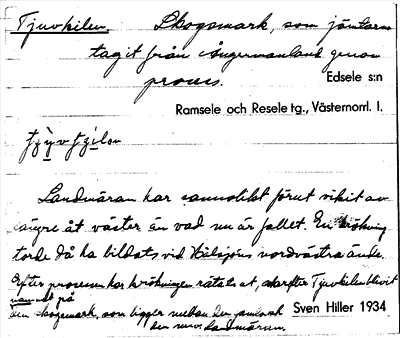 Tjuvkilen. Skogsmark, som jämtarna
tagit från Ångermanland genom
process.
Edsele s:n
Ramsele och Resele tg., Västernorrl. l.
Landmäran har sannolikt förut vikit av
längre åt väster än vad nu är fallet. En krökning
torde då ha bildats vid nordvästra ände.
Efter processen har krökningen rätats ut, därefter Tjuvkilen blivit
namnet på
den skogsmark, som ligger mellan den gamla och
den nuv. landmäran.
Sven Hiller 1934